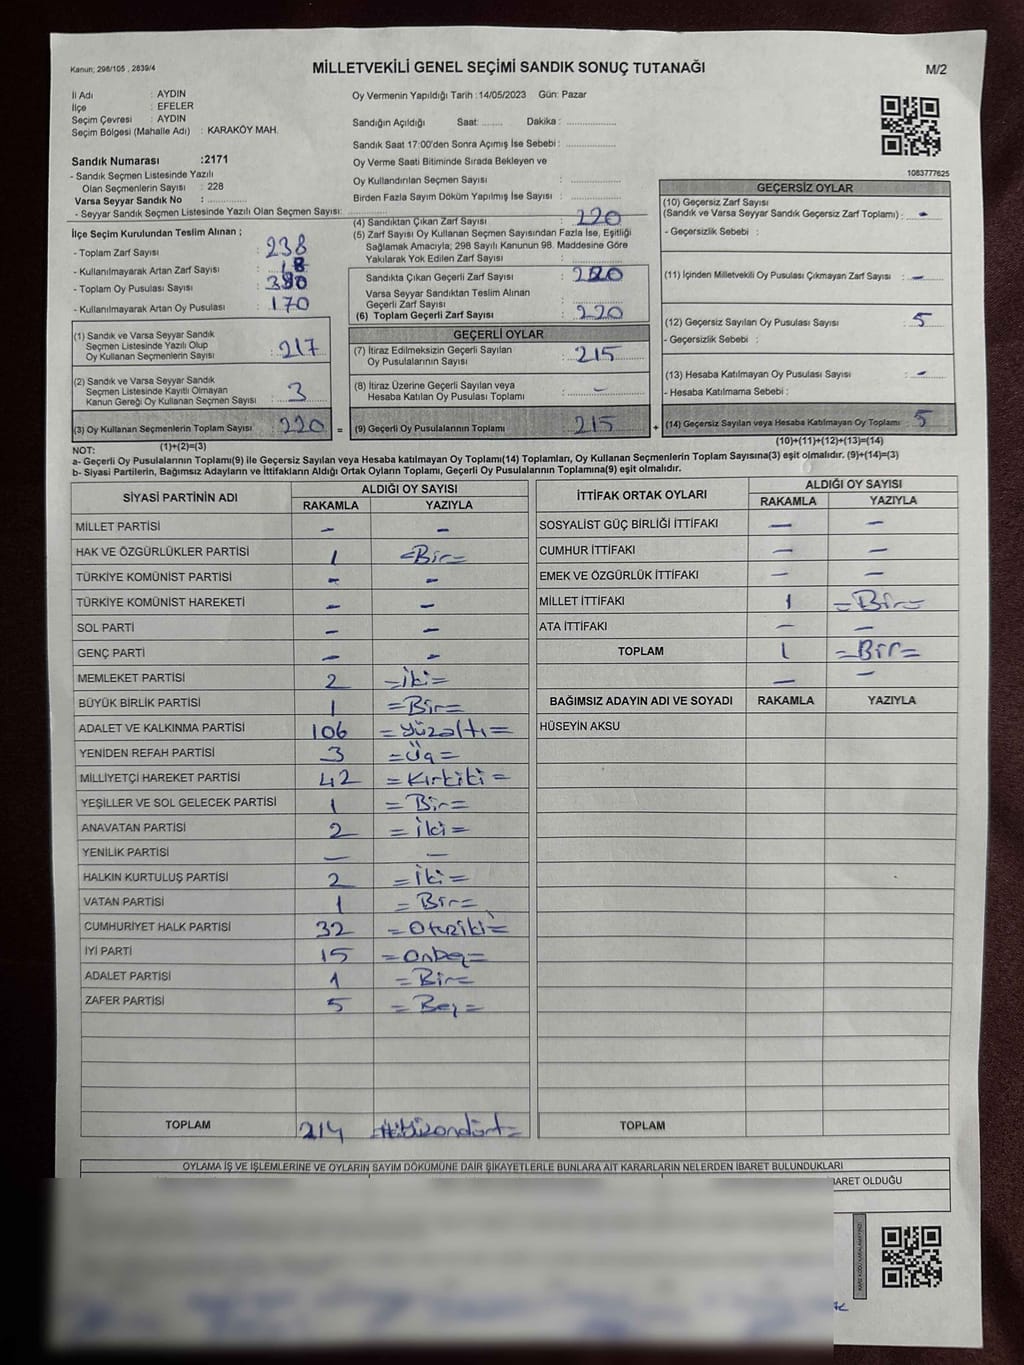 Kanun; 298/105 , 2839/4
MİLLETVEKİLİ GENEL SEÇİMİ SANDIK SONUÇ TUTANAĞI
M/2
İl Adı : AYDIN
İlçe : EFELER
Seçim Çevresi : AYDIN
Seçim Bölgesi (Mahalle Adı) : KARAKÖY MAH.
Oy Vermenin Yapıldığı Tarih :14/05/2023 Gün: Pazar
Sandığın Açıldığı Saat: ........ Dakika : ................
Sandık Saat 17:00'den Sonra Açımış İse Sebebi : ................
Oy Verme Saati Bitiminde Sırada Bekleyen ve
Oy Kullandırılan Seçmen Sayısı : ................
Birden Fazla Sayım Döküm Yapılmış İse Sayısı : ................
Sandık Numarası :2171
- Sandık Seçmen Listesinde Yazılı
Olan Seçmenlerin Sayısı : 228
Varsa Seyyar Sandık No : ................
- Seyyar Sandık Seçmen Listesinde Yazılı Olan Seçmen Sayısı: ................
1083777625
İlçe Seçim Kurulundan Teslim Alınan ;
- Toplam Zarf Sayısı : 238
- Kullanılmayarak Artan Zarf Sayısı : 18
- Toplam Oy Pusulası Sayısı : 390
- Kullanılmayarak Artan Oy Pusulası : 170
(1) Sandık ve Varsa Seyyar Sandık
Seçmen Listesinde Yazılı Olup
Oy Kullanan Seçmenlerin Sayısı : 217
(2) Sandık ve Varsa Seyyar Sandık
Seçmen Listesinde Kayıtlı Olmayan
Kanun Gereği Oy Kullanan Seçmen Sayısı : 3
(3) Oy Kullanan Seçmenlerin Toplam Sayısı : 220 =
(1)+(2)=(3)
(4) Sandıktan Çıkan Zarf Sayısı : 220
(5) Zarf Sayısı Oy Kullanan Seçmen Sayısından Fazla İse, Eşitliği
Sağlamak Amacıyla; 298 Sayılı Kanunun 98. Maddesine Göre
Yakılarak Yok Edilen Zarf Sayısı :
Sandıkta Çıkan Geçerli Zarf Sayısı : 220
Varsa Seyyar Sandıktan Teslim Alınan
Geçerli Zarf Sayısı :
(6) Toplam Geçerli Zarf Sayısı : 220
GEÇERLİ OYLAR
(7) İtiraz Edilmeksizin Geçerli Sayılan
Oy Pusulalarının Sayısı : 215
(8) İtiraz Üzerine Geçerli Sayılan veya
Hesaba Katılan Oy Pusulası Toplamı : -
(9) Geçerli Oy Pusulalarının Toplamı : 215 +
GEÇERSİZ OYLAR
(10) Geçersiz Zarf Sayısı
(Sandık ve Varsa Seyyar Sandık Geçersiz Zarf Toplamı) : -
- Geçersizlik Sebebi :
(11) İçinden Milletvekili Oy Pusulası Çıkmayan Zarf Sayısı : -
(12) Geçersiz Sayılan Oy Pusulası Sayısı : 5
- Geçersizlik Sebebi :
(13) Hesaba Katılmayan Oy Pusulası Sayısı : -
- Hesaba Katılmama Sebebi :
(14) Geçersiz Sayılan veya Hesaba Katılmayan Oy Toplamı : 5
(10)+(11)+(12)+(13)=(14)
NOT:
a- Geçerli Oy Pusulalarının Toplamı(9) ile Geçersiz Sayılan veya Hesaba katılmayan Oy Toplamı(14) Toplamları, Oy Kullanan Seçmenlerin Toplam Sayısına(3) eşit olmalıdır. (9)+(14)=(3)
b- Siyasi Partilerin, Bağımsız Adayların ve İttifakların Aldığı Ortak Oyların Toplamı, Geçerli Oy Pusulalarının Toplamına(9) eşit olmalıdır.
SİYASİ PARTİNİN ADI ALDIĞI OY SAYISI
RAKAMLA YAZIYLA
MİLLET PARTİSİ - -
HAK VE ÖZGÜRLÜKLER PARTİSİ 1 =Bir=
TÜRKİYE KOMÜNİST PARTİSİ - -
TÜRKİYE KOMÜNİST HAREKETİ - -
SOL PARTİ - -
GENÇ PARTİ - -
MEMLEKET PARTİSİ 2 =İki=
BÜYÜK BİRLİK PARTİSİ 1 =Bir=
ADALET VE KALKINMA PARTİSİ 106 =Yüzaltı=
YENİDEN REFAH PARTİSİ 3 =Üç=
MİLLİYETÇİ HAREKET PARTİSİ 42 =Kırkiki=
YEŞİLLER VE SOL GELECEK PARTİSİ 1 =Bir=
ANAVATAN PARTİSİ 2 =İki=
YENİLİK PARTİSİ - -
HALKIN KURTULUŞ PARTİSİ 2 =İki=
VATAN PARTİSİ 1 =Bir=
CUMHURİYET HALK PARTİSİ 32 =Otuziki=
İYİ PARTİ 15 =Onbeş=
ADALET PARTİSİ 1 =Bir=
ZAFER PARTİSİ 5 =Beş=
TOPLAM 214 =İkiyüzondört=
İTTİFAK ORTAK OYLARI ALDIĞI OY SAYISI
RAKAMLA YAZIYLA
SOSYALİST GÜÇ BİRLİĞİ İTTİFAKI - -
CUMHUR İTTİFAKI - -
EMEK VE ÖZGÜRLÜK İTTİFAKI - -
MİLLET İTTİFAKI 1 =Bir=
ATA İTTİFAKI - -
TOPLAM 1 =Bir=
- -
BAĞIMSIZ ADAYIN ADI VE SOYADI RAKAMLA YAZIYLA
HÜSEYİN AKSU
TOPLAM
OYLAMA İŞ VE İŞLEMLERİNE VE OYLARIN SAYIM DÖKÜMÜNE DAİR ŞİKAYETLERLE BUNLARA AİT KARARLARIN NELERDEN İBARET BULUNDUKLARI
BARET OLDUĞU